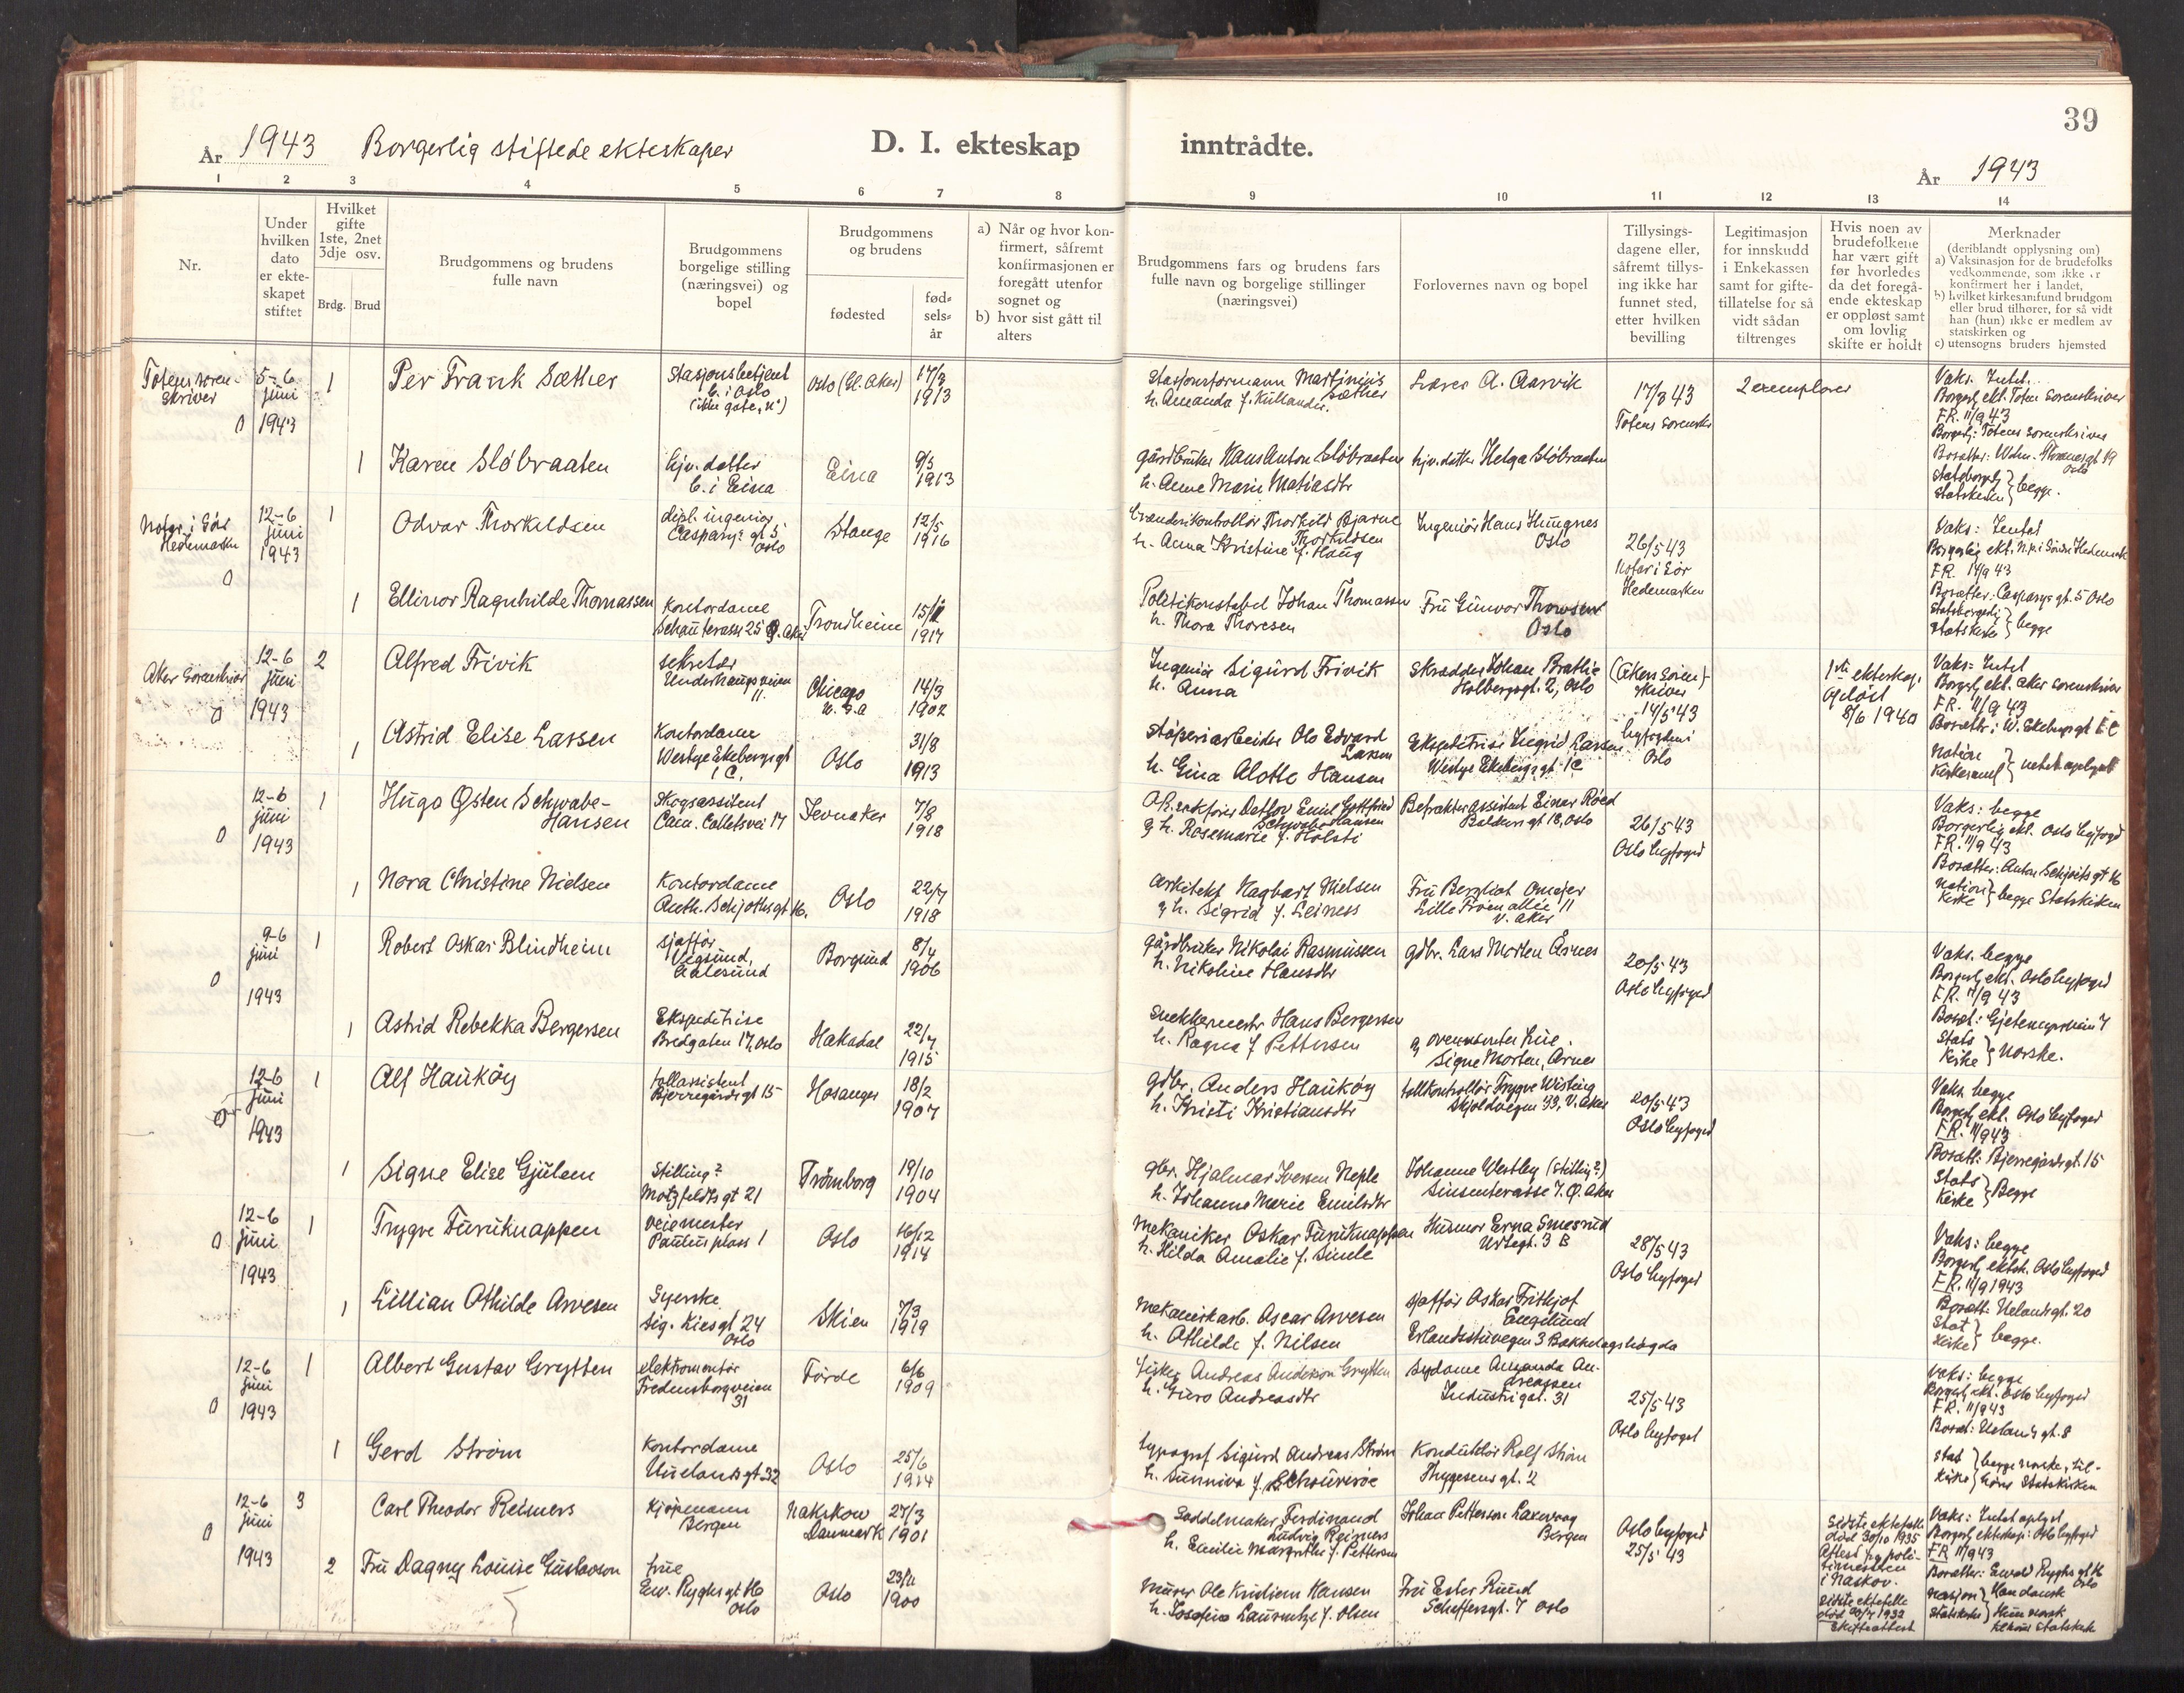 39
År 1943 Borgerlig stiftede ekteskaper D. I. ekteskap inntrådte. År 1943
1 2 3 4 5 6 7 8 9 10 11 12 13 14
Nr.
Under
hvilken
dato
er ekte-
skapet
stiftet
Hvilket
gifte
1ste, 2net
3dje osv.
Brdg. Brud
Brudgommens og brudens
fulle navn
Brudgommens
borgelige stilling
(næringsvei) og
bopel
Brudgommens
og brudens
fødested
fød-
sels-
år
a) Når og hvor kon-
firmert, såfremt
konfirmasjonen er
foregått utenfor
sognet og
b) hvor sist gått til
alters
Brudgommens fars og brudens fars
fulle navn og borgelige stillinger
(næringsvei)
Forlovernes navn og bopel
Tillysings-
dagene eller,
såfremt tillys-
ing ikke har
funnet sted,
etter hvilken
bevilling
Legitimasjon
for innskudd
i Enkekassen
samt for gifte-
tillatelse for så
vidt sådan
tiltrenges
Hvis noen av
brudefolkene
har vært gift
før hvorledes
da det foregå-
ende ekteskap
er oppløst samt
om lovlig
skifte er holdt
Merknader
(deriblandt opplysning om)
a) Vaksinasjon for de brudefolks
vedkommende, som ikke er
konfirmert her i landet,
b) hvilket kirkesamfund brudgom
eller brud tilhører, for så vidt
han (hun) ikke er medlem av
statskirken og
c) utensogns bruders hjemsted
Totens soren-
skriver
5-6
juni
1943
1
Per Frank Sæther
Stasjonsbetjent
b. i Oslo
Oslo (Gl. Aker)
17/3
1913
Stasjonsformann Martinius
Sæther
h. Amanda f. Kullander.
Lærer A. Aarvik
17/3 43
Totens sorenskr
2 exemplarer
Vaks. Intet.
Borgerl. ekt. Toten Sorenskriver
F.R. 11/9 43
Borgerl: Totens sorenskriver
Bosatte: Wilh. Thranesgt 19
Oslo
Statsborgl
Statskirken } begge.
1
Karen Sløbraaten
hjv. datter
b. i Eina
Eina
9/5
1913
gårdbruker Hans Anton Sløbraaten
h. Anne Marie Matiasdtr
hjv. datter Helga Sløbraaten
Notar i Sør
Hedemarken
12-6
juni
1943
1
Odvar Thorkildsen
dipl. ingeniør
Casparys gt 5
Oslo
Stange
12/5
1916
Thorkild Bjarne
Thorkildsen
h. Anna Kristine f. Haug
Ingeniør Hans Hungnes
Oslo
26/5 43
Notar i Sør
Hedemarken
Vaks: Intet
F.R. 14/9 43
Bosatte: Casparys gt. 5 Oslo
Statsborgerl.
Statskirke } begge
1
Ellinor Ragnhilde Thomassen
Kontordame
Trondheim
1917
Politikonstabel Johan Thomassen
h. Thora Thoresen
Fru Gunvor Thowsen
Oslo
Aker Sorenskriver
12-6
juni
1943
2
Alfred Frivik
sekretær
Underhaugsveien
11
Chicago
U.S.A
14/3
1902
Ingeniør Sigurd Frivik
h. Anna
Skredder Johan Brathie
Holbergsgt. 2, Oslo
(Akers Soren-
skriver
14/5 43
byfogden i
Oslo
1ste ekteskap
opløst
8/6 1940
Vaks: Intet
Borgerl. ekt. Aker sorenskriver
F.R. 11/9 43
1
Astrid Elise Larsen
Kontordame
Westye Ekebergsgt
1 C.
Oslo
31/8
1913
Støperiarbeider Ole Edvard
Larsen
h. Gina Alotte Hansen
Ekspeditrise Ingrid Larsen
Westye Ekebergsgt. 1C
12-6
juni
1943
1
Hugo Østen Schwabe-
Hansen
Skogsassistent
Cam. Colletsvei 17
Jevnaker
7/8
1918
Detlov Emil Gottfried
Schwabe-Hansen
g h. Rosemarie f. Holsti
Befrakter assistent Einar Røed
Balders gt 18, Oslo
26/5 43
Oslo byfoged
Vaks: begge
Borgerlig ekt. Oslo byfoged
F.R. 11/9 43
Bosatte: Anton Schjøtts gt 16
Nation
Kirke } begge Statskirken
1
Nora Christine Nielsen
Kontordame
Anth. Schjøthsgt 16.
Oslo
22/7
1918
Arkitekt Hagbart Nielsen
g h. Sigrid f. Leiness
Fru Bergliot Omejer
Lille Frøen allée 11
V. Aker
9-6
juni
1943
1
Robert Oskar Blindheim
sjåfør
Vegsund,
Aalesund
Borgund
8/4
1906
gårdbruker Nikolai Rasmussen
h. Nikoline Hansdtr
gdbr. Lars Morten Åsnes
20/5 43
Oslo byfoged
Vaks. begge
Borgerl. ekt. Oslo byfoged
F.R. 11/9 43
Stats
Kirke } Norske.
1
Astrid Rebekka Bergersen
Ekspeditrise
Bredgaten 17, Oslo
Hakadal
22/7
1915
Snekkermestr Hans Bergersen
h. Ragna f Pettersen
12-6
juni
1943
1
Alf Haukøy
tollassistent
Bjerregårdsgt 15
Hosanger
18/2
1907
gdbr. Anders Haukøy
h. Kristi Kristiansdtr
tollkontrollør Trygve Wisting
Skjoldvegen 33, V. Aker
20/5 43
Oslo byfoged
Vaks. begge
Borgerl. ekt. Oslo byfoged
F.R. 11/9 43
Bosatt: Bjerregårdsgt. 15
Stats
Kirke } Begge
1
Signe Elise Gjulem
Stilling?
Motzfeldts gt 21
Trømborg
19/10
1904
gbr. Hjalmar Iversen Neple
h. Johanne Marie Emilsdtr
Johanne Westby (stilling?)
Sinsenterasse 7. Ø. Aker
12-6
juni
1943
1
Trygve Furuknappen
veiemester
Paulus plass 1
Oslo
16/12
1914
Mekaniker Oskar Furuknappen
h. Hilda Amalie f. Sinele
Husmor Erna Smesrud
Urtegt. 3 B
28/5 43
Oslo byfoged
Vaks: begge
Borgerl. ektsk. Oslo byfoged
F.R. 11/9 1943
Bosatt: Uelandsgt. 20
Stat
Kirke } begge.
1
Lillian Othilde Arvesen
Syerske
Sig. Liesgt 24
Oslo
Skien
7/3
1919
Mekanikarb. Oscar Arvesen
h. Othilde f. Nilsen
sjåffør Oskar Frithjof
Englund
Erlandsstuvegen 3 Bakkehagshøgda
12-6
juni
1943
1
Albert Gustav Grytten
elektromontør
Fredensborgveien
31
Førde
6/6
1909
fisker Andreas Anderson Grytten
h. Guro Andreasdtr
sydame Amanda An-
dreassen
Industrigat. 31
25/5 43
Oslo byfoget
Vaks: begge
Borgerl. ekt. Oslo byfoged
F.R. 11/9 43
Bosat: Uelands gt. 8
Stat
Kirke } begge norske, til-
hører Statskirken
1
Gerd Strøm
Kontordame
Uuelandsgt 32
Oslo
25/6
1914
typograf Sigurd Andreas Strøm
Konduktør Rolf Strøm
Thygesens gt. 2
12-6
juni
1943
3
Carl Theodor Reimers
Kjøpmann
Bergen
Nakskow
Danmark
27/3
1901
Saddelmaker Ferdinand
Ludvig Reimers
h. Emilie Margrethe f. Petterson
Johan Petterson Laxevaag
Bergen
Oslo byfoged
25/5 43
Sidste ektefelle
død 30/10 1935
Attest fra poli-
timesteren
i Naskov.
Sidste ektefelle
død 20/7 1932
Skifteattest
Vaks: Intet oplyst
Borgerl. ekteskap: Oslo byfoged
F.R 11/9 43
Bosatte: Ewald Ryghs gt 16
Oslo
Nasjon } Han dansk
Statskirke } Hun norsk
2
Fru Dagny Louise Gustavson
frue
Ew. Ryghs gt 16
Oslo
Oslo
23/11
1900
Murer Ole Kristian Hansen
h. Josefine Laurentze f. Olsen
Fru Ester Ruud
Scheffersgt. 7 Oslo